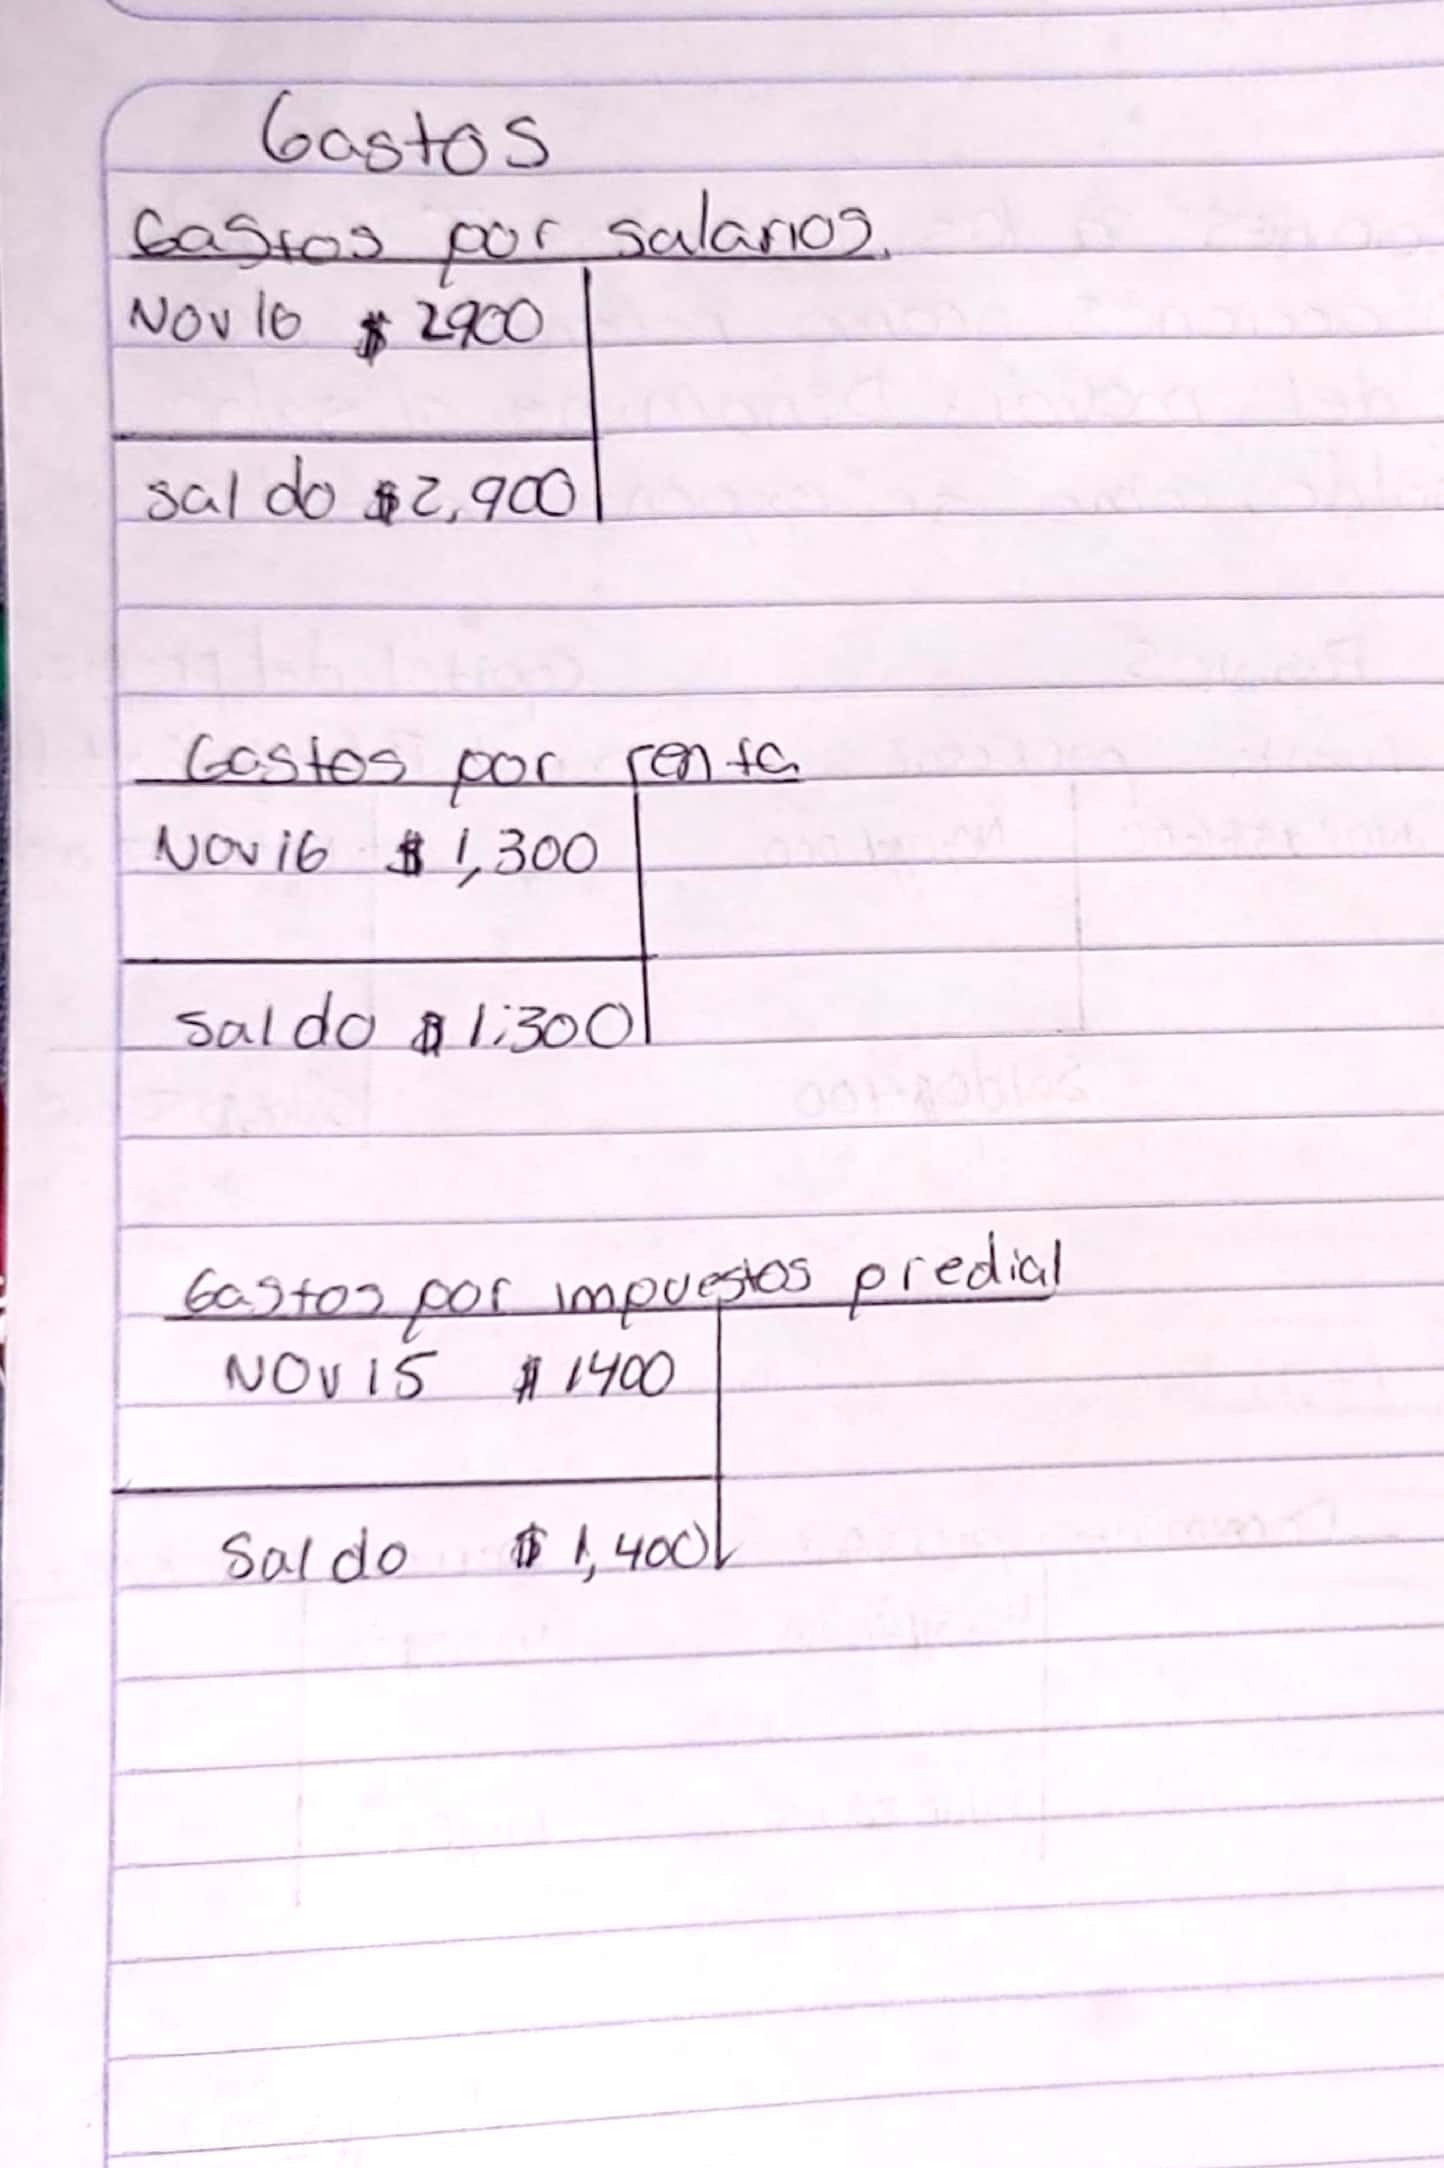 Gastos
Gastos por salarios.
Nov 16 $ 2900
saldo $2,900
Gastos por renta
Nov 16 $ 1,300
Saldo $ 1:300
Gastos por impuestos predial
NOV 15 $ 1400
Saldo $ 1,400